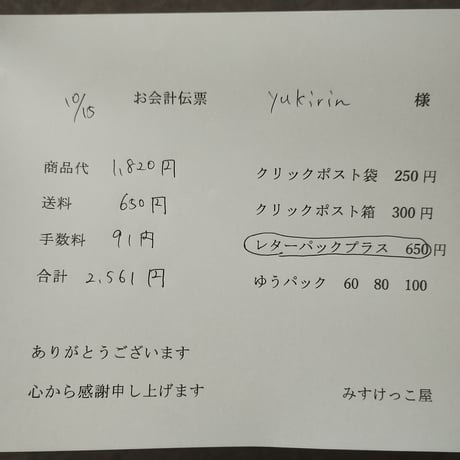 10/15 お会計伝票 yukirin 様
商品代 1,820円
送料 650円
手数料 91円
合計 2,561円
クリックポスト袋 250円
クリックポスト箱 300円
レターパックプラス 650円
ゆうパック 60 80 100
ありがとうございます
心から感謝申し上げます
みすけっこ屋